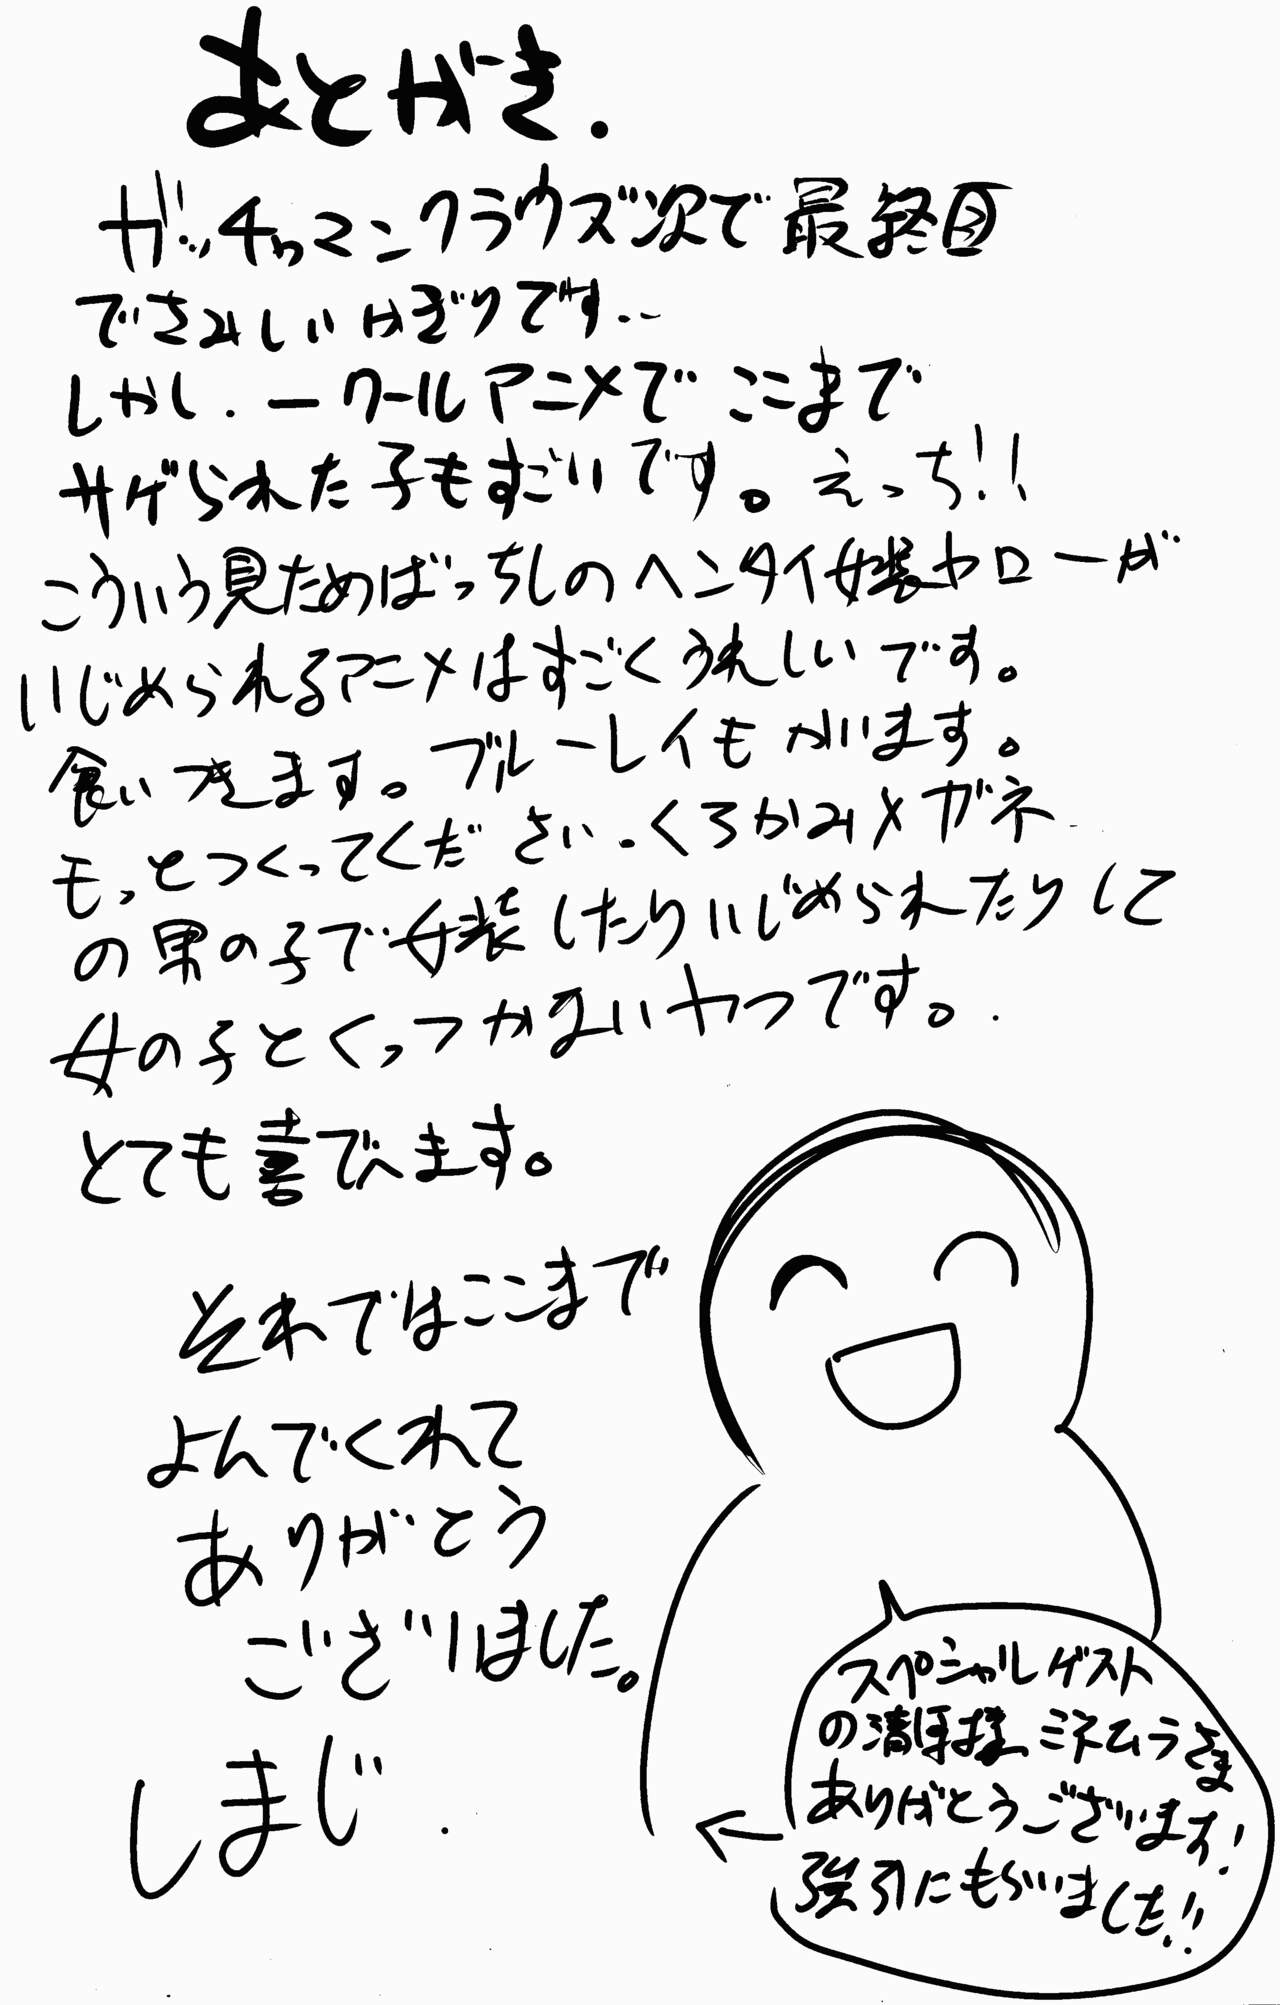 あとがき.
ガッチャマンクラウズ次で最終回
でさみしいかぎりです..
しかし.一クールアニメでここまで
サゲられた子もすごいです。えっち!!
こういう見ためばっちしのヘンタイ女装ヤローが
いじめられるアニメはすごくうれしいです。
食いつきます。ブルーレイもかいます。
もっとつくってください.くろかみメガネ
の男の子で女装したりいじめられたりして
女の子とくっつかないやつです。.
とても喜びます。
それではここまで
よんでくれて
ありがとう
ございました。
しまじ.
スペシャルゲスト
の清保様ミネムラさま
ありがとうございます!
強引にもらいました!!